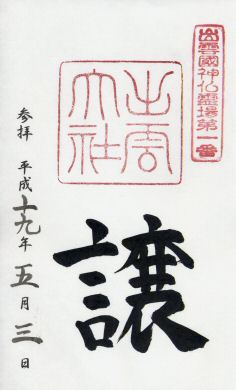 出雲國神仏霊場第一番
出雲大社
譲
参拝 平成十九年五月三日